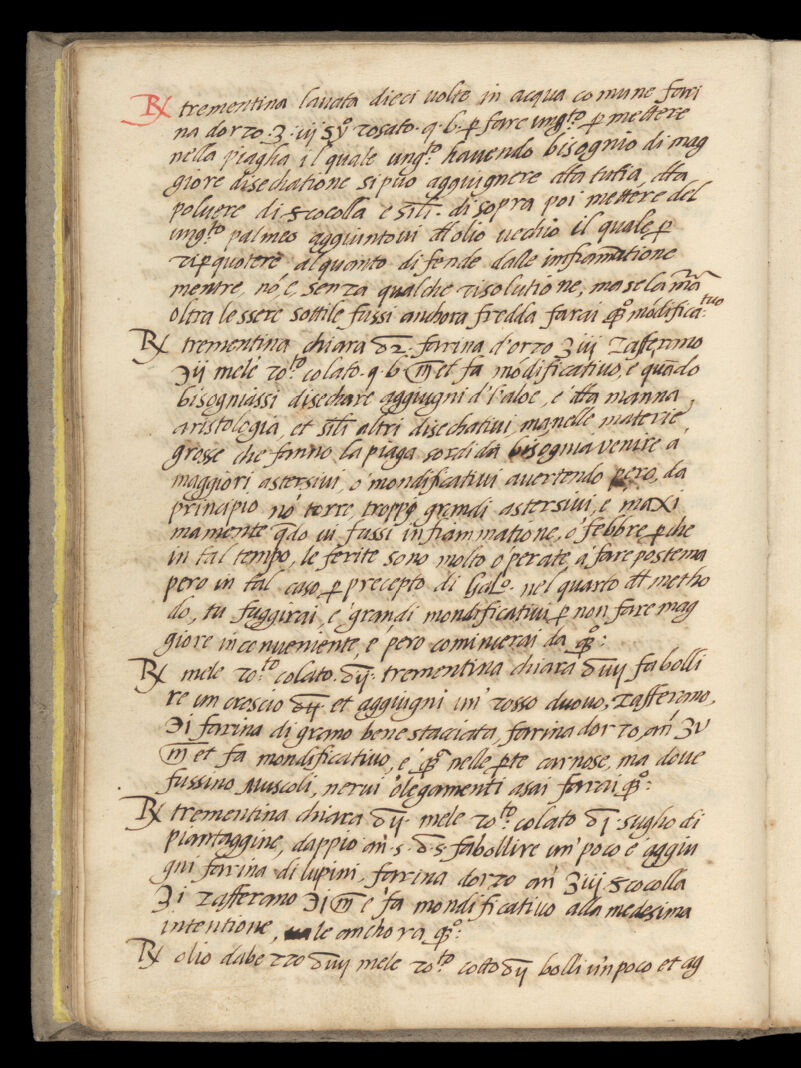 ℞ trementina lavata dieci volte in acqua comune fari
na dorzo ·ʒ·iij sy.º rosato·q·b·ꝑ fare ung.to ꝑ mettere
nella piagha il quale ung.to havendo bisognio di mag
giore disechatione si puo aggiugnere dĺla tutia dĺla
polvere di scocolla e sili· di sopra poi mettére del
ung.to palmeo aggiuntovi dĺl olio vechio il quale ꝑ
riꝑquotere alquanto difende dalle infiam̄atione
mentre, nó, é, senza qualche risolutione, ma se la mr̄ã
oltra lessere sottile fussi anchora fredda farai qº módifica:tivo
℞ trementina chiara ℥2· farina d'orzo ʒ iij zafferano
℈ij melé ro.to colato·q·b·m̄ et fa módificativo, e quãdo
bisogniassi disechare aggiugni d'l'aloe, e dĺla manna,
aristologia, et sili altri disechativi, ma nelle materie
grosse che fanno la piaga sordida bisognia venire a
maggiori astersivi, o' mondificativi avertendo pero, da
principio nó torre, troppi grandi astersivi, e maxi
mamente q̃do vi fussi infiammatione, o' febbre ꝑche
in tal tempo, le ferite sono molto o'perate, a' fare postema
pero in tal caso, ꝑ precepto di Galº. nel quarto dĺ metho
do, tu fuggirai, e' grandi mondificativi ꝑ non fare mag
giore inconveniente, e' pero comincerai da qº:
℞ mele ro.to colato·℥ij· trementina chiara ℥iiij fa bolli
re un croscio ℥ij· et aggiugni un' rosso duovo, zafferano,
℈i farina di grano bene staciata, farina dorzo, an̄ ʒv
m̄ et fa mondificativo, e' qº nelle ꝑte carnose, ma dove
fussino muscoli, nervi o'legamenti asai farai qº:
℞ trementina chiara ℥ij· mele ro.to colato ℥i· sugho di
piantaggine, dappio an̄·s·℥·s· fa bollire un' poco e' aggiu
gni farina di lupini, farina dorzo an̄ ʒiij· scocolla
ʒi zafferano ℈i m̄ e' fa mondificativo alla medesima
intentione, vale anchora qº:
℞ olio dabezzo ℥iiij mele ro.to cotto ℥ij bolli u'n poco et ag